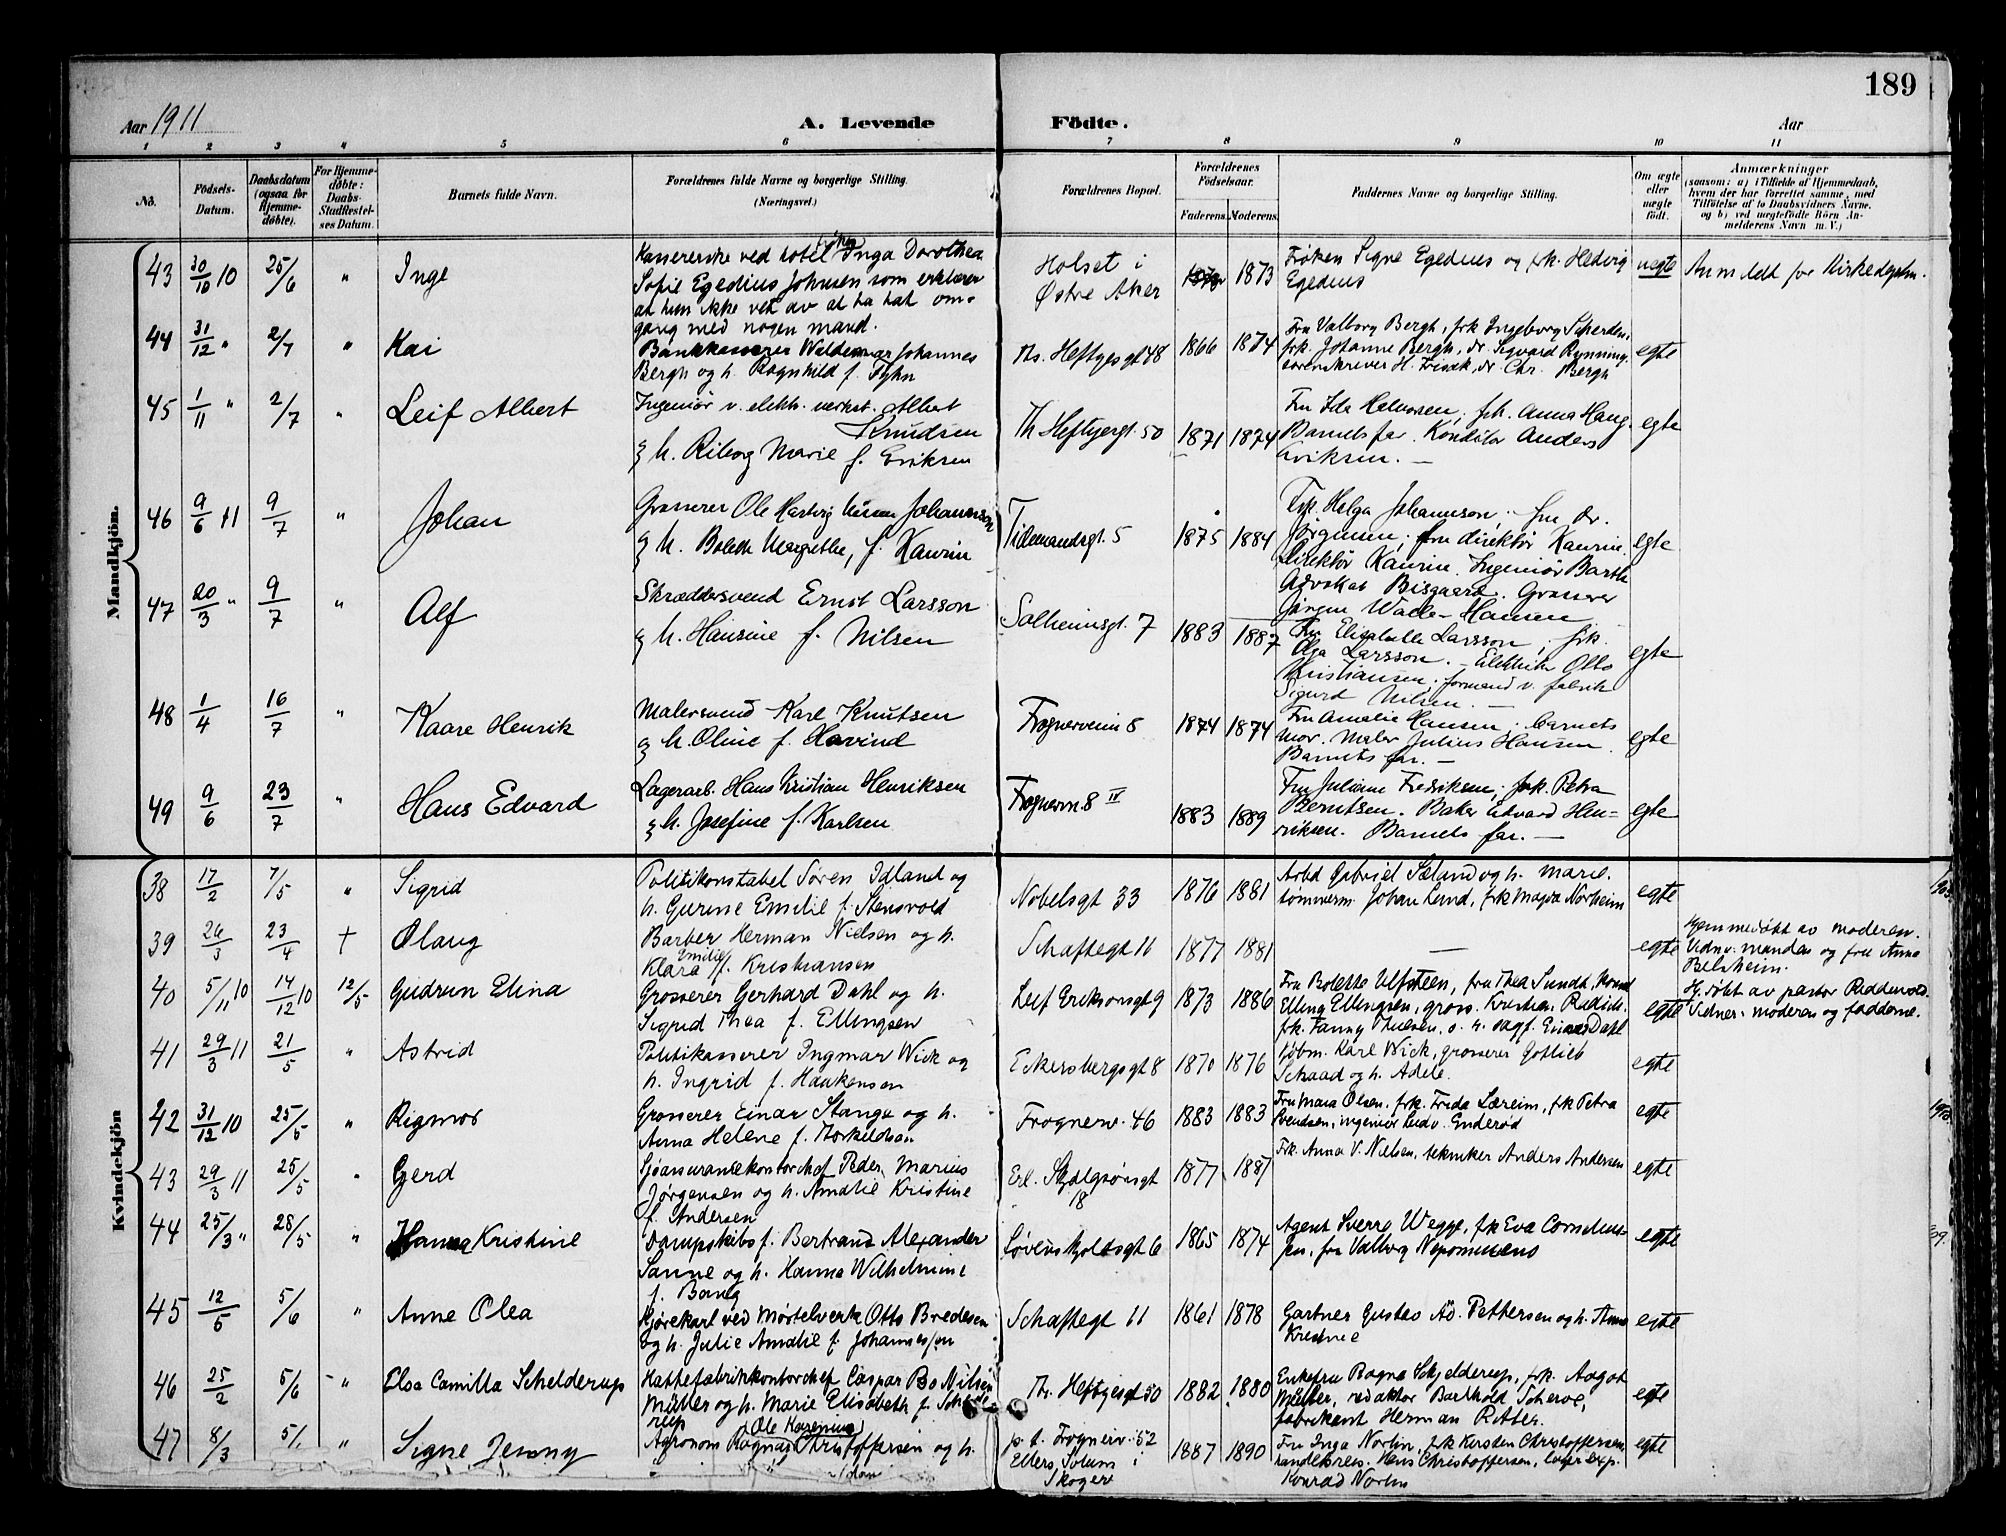 189
Aar 1911
A. Levende Födte.
Aar
1 2 3 4 5 6 7 8 9 10 11
No.
Födsels-
Datum.
Daabsdatum
(ogsaa for
Hjemme-
döbte).
For Hjemme-
döbte:
Daabs-
Stadfestel-
ses Datum.
Barnets fulde Navn.
Forældrenes fulde Navne og borgerlige Stilling.
(Næringsvei.)
Forældrenes Bopæl.
Forældrenes
Födselsaar.
Faderens. Moderens.
Faddernes Navne og borgerlige Stilling.
Om ægte
eller
uægte
födt.
Anmærkninger
(saasom: a) i Tilfælde af Hjemmedaab,
hvem der har forrettet samme, med
Tilföielse af to Daabsvidners Navne,
og b) ved uægtefödte Börn An-
melderens Navn m. V.)
Mandkjön.
43 30/10 10 25/6 " Inge
Kassererske ved hotel Inga Dorothea
Sofie Egedius Johnsen som erklærer
at hun ikke vet av at ha hat om-
gang med nogen mand.
Holset i
Østre Aker
1873
Frøken Signe Egedius og frk. Hedvig
Egedius
uegte
Anmeldt for Kirkedepm.
44 31/12 " 2/7 " Kai
Bankkasserer Waldemar Johannes
Bergh og h. Ragnhild f. Tyhn
Th. Heftyesgt 48 1866 1874
Fru Valborg Bergh, frk Ingeborg
frk. Johanne Bergh, dr Sigvard Rynning,
sorenskriver H. dr. Chr. Bergh
egte
45 1/11 " 2/7 " Leif Albert
Ingeniør v. elektr. verkst. Albert
Knudsen
& h. Riborg Marie f. Eriksen
Th Heftyesgt. 50 1871 1874
Fru Ida Halvorsen; frk. Anna Haug.
Barnets far. Konditor Anders
Eriksen. —
egte
46 9/6 11 9/7 " Johan
Grosserer Ole Hartvig Johannson
& h. Bolette Margrethe, f. Kaurin
Tidemandsgt. 5 1875 1884
Frk. Helga Johannson; fru dr.
Jørgensen; fru direktør Kaurin.
Direktør Kaurin. Ingeniør Barth
Advokat Bisgaard. Grosserer
Jørgen Hansen
egte
47 20/3 " 9/7 " Alf
Skræddersvend Ernst Larsson
& h. Hansine f. Nilsen
Solheimsgt. 7 1883 1887
Fru Elisabeth Larsson; frk.
Olga Larsson. — Otto
Kristiansen. formand v. fabrik
Sigurd Nilsen. —
egte
48 1/4 16/7 " Kaare Henrik
Malersvend Karl Knutsen
& h. Oline f. Havind
Frognerveien 8 1874 1874
Fru Amalie Hansen. barnets
mor. Maler Julius Hansen.
Barnets far. —
egte
49 9/6 23/7 " Hans Edvard
Lagerarb. Hans Kristian Henriksen
& h. Josefine f. Karlsen
Frognerv. 8 IV 1883 1889
Fru Juliane Fredriksen; frk. Petra
Berntsen. Baker Edvard Hen-
riksen. Barnets far. —
egte
Kvindekjön
38 17/2 7/5 " Sigrid
Politikonstabel Søren Idland og
h. Gurine Emilie f. Stensvold
Nobelsgt 33 1876 1881
Arbd Gabriel Sæland og h. Marie.
tømmerm. Johan Lund, frk Magda Norheim
egte
39 26/3 23/4 + Olaug
Barber Herman Nielsen og h.
Klara Emilie f. Kristiansen
Schaftegt 11 1877 1881
—
egte
Hjemmedøbt av moderen.
Vidn. manden og fru Anna
Belsheim.
40 5/11 10 14/12 10 12/5 Gudrun Elina
Grosserer Gerhard Dahl og h.
Sigrid Thea f. Ellingsen
Leif Eriksonsgt 9 1873 1886
Fru Bolette Ulfsteen, fru Thea Sundt,
Elling Ellingsen, gross. Kristian
frk. Fanny Thielsen, o. r. sagf. Einar Dahl
egte
Hj. døbt av pastor Riddervold.
Vidner: moderen og fadderne.
41 29/3 11 21/5 " Astrid
Politikasserer Ingmar Wick og
h. Ingrid f. Haakensen
Eckersbergsgt 8 1870 1876
Kjøbm. Karl Wick, grosserer Gotlieb
Schaad og h. Adele.
egte
42 31/12 10 25/5 " Rigmor
Grosserer Einar Stange og h.
Anna Helene f. Torkildsen
Frognerv. 46 1883 1883
Fru Maia Olsen, frk. Frida Læreim, frk Petra
Svendsen, ingeniør Ludv. Enderød
egte
43 29/3 11 25/5 " Gerd
Sjøassurancekontorchef Peder Marius
Jørgensen og h. Amalie Kristine
f. Andersen
Erl. Skjalgsønsgt
18
1877 1887
Frk. Anna V. Nielsen, tekniker Anders Andersen
egte
44 25/3 " 28/5 " Hanna Kristine
Dampskibsf. Bertrand Alexander
Sanne og h. Hanna Wilhelmine
f. Bang
Løvenskjoldsgt 6 1865 1874
Agent Sverre Wegge, frk Eva Cornelius-
sen, fru Valborg Nepomuceno
egte
45 12/5 5/6 " Anne Olea
Kjørekarl ved Mørtelverk Otto Bredesen
og h. Julie Amalie f. Johannessen
Schaftegt 11 1861 1878
Gartner Gustav Ad. Pettersen og h. Anna
Kristine
egte
46 25/2 5/6 " Elsa Camilla Schelderup
Hattefabrikkontorchef Caspar Bo Nilsen
Müller og h. Marie Elisabeth f. Schelde-
rup
Th. Heftyesgt 50 1882 1880
Enkefru Ragna Schjelderup, frk. Aagot
Müller, redaktør Barthold
fabrikant Herman Ritter.
egte
47 8/3 5/ " Signe Jenny
(Ole Karenius)
Agronom Ragnar Christoffersen og h.
p.t. Frognerv. 52
Ellers Solum i
Skoger
1887 1890
Fru Inga Norlin, frk Kirsten Christoffersen,
Hans Christoffersen, lagerexp.
Konrad Norlin
egte